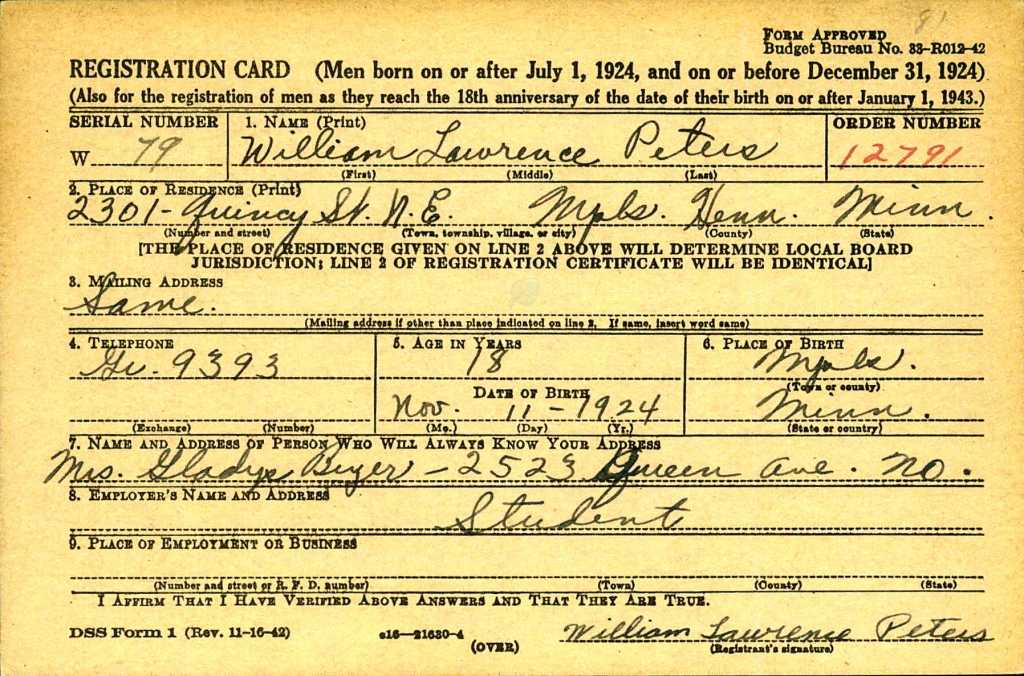 81
FORM APPROVED
Budget Bureau No. 33-R012-42
REGISTRATION CARD (Men born on or after July 1, 1924, and on or before December 31, 1924)
(Also for the registration of men as they reach the 18th anniversary of the date of their birth on or after January 1, 1943.)
SERIAL NUMBER 1. NAME (Print) ORDER NUMBER
W 79 William Lawrence Peters 12791
(First) (Middle) (Last)
2. PLACE OF RESIDENCE (Print)
2301 - Quincy St. N.E. Mpls. Henn. Minn.
(Number and street) (Town, township, village, or city) (County) (State)
[THE PLACE OF RESIDENCE GIVEN ON LINE 2 ABOVE WILL DETERMINE LOCAL BOARD
JURISDICTION; LINE 2 OF REGISTRATION CERTIFICATE WILL BE IDENTICAL]
3. MAILING ADDRESS
Same.
(Mailing address if other than place indicated on line 2. If same, insert word same)
4. TELEPHONE 5. AGE IN YEARS 6. PLACE OF BIRTH
Gr. 9393 18 Mpls.
(Town or county)
DATE OF BIRTH
Nov. 11 - 1924 Minn.
(Exchange) (Number) (Mo.) (Day) (Yr.) (State or country)
7. NAME AND ADDRESS OF PERSON WHO WILL ALWAYS KNOW YOUR ADDRESS
Mrs. Gladys - 2523 Queen Ave. No.
8. EMPLOYER'S NAME AND ADDRESS
Student
9. PLACE OF EMPLOYMENT OR BUSINESS
(Number and street or R. F. D. number) (Town) (County) (State)
I AFFIRM THAT I HAVE VERIFIED ABOVE ANSWERS AND THAT THEY ARE TRUE.
DSS Form 1 (Rev. 11-16-42) e16-21630-4 (OVER) William Lawrence Peters
(Registrant's signature)